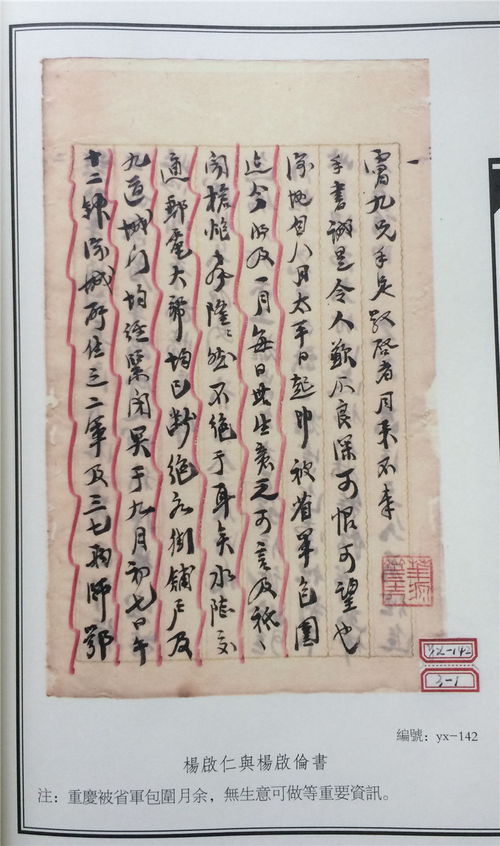 霄九兄手足敬啓者月来不奉
手書誠是令人歉仄良深可恨可望也
渝地自八月太平日起即被省軍包圍
迄今將及一月每日無生意之可言及祇
聞槍炮之声隆隆然不絕于耳矣水陸交
通郵電大帮均已斷絕各街铺户及
九道城门均経緊闭昊于九月初七日午
十二鈡渝城所住之二軍及三七两師鄂
yx-142
3-1
編號：yx-142
楊啟仁與楊啟倫書
注：重慶被省軍包圍月余，無生意可做等重要資訊。